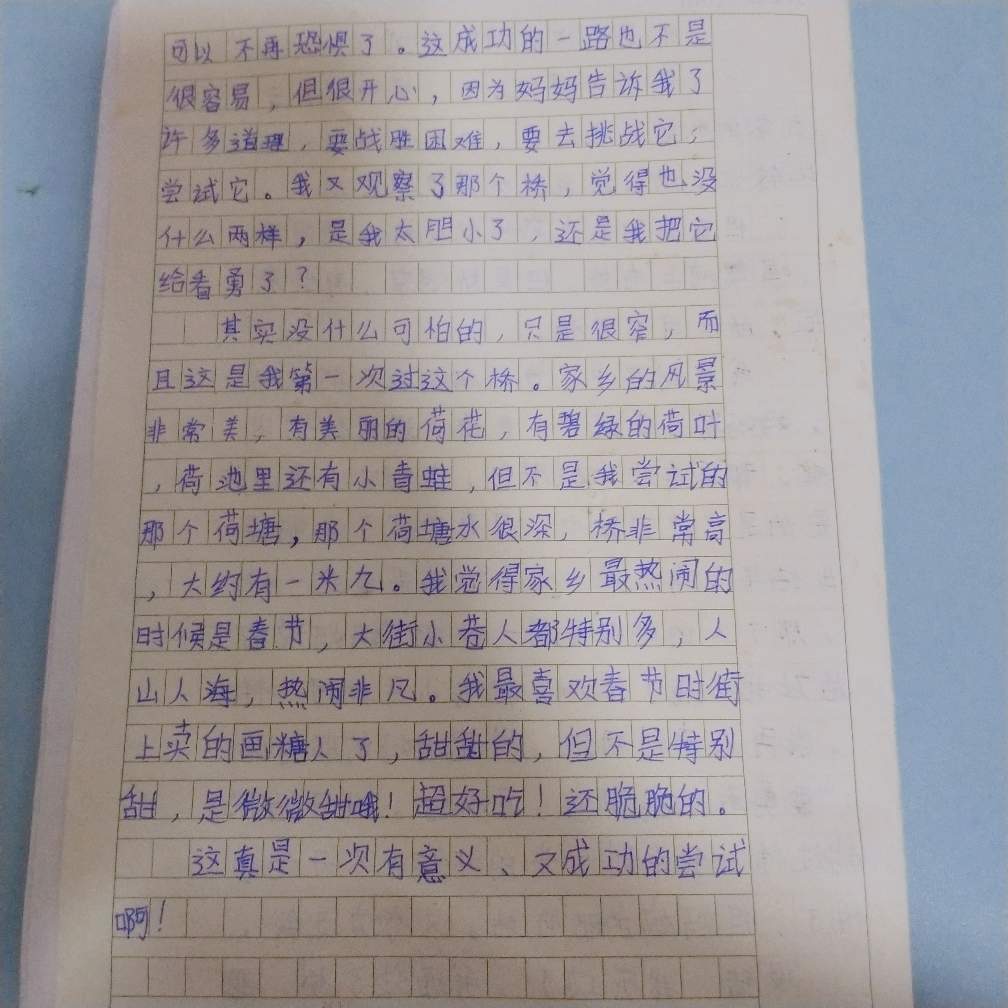 可以不再恐惧了。这成功的一路也不是
很容易，但很开心，因为妈妈告诉我了
许多道理，要战胜困难，要去挑战它，
尝试它。我又观察了那个桥，觉得也没
什么两样，是我太胆小了，还是我把它
给看勇了？
其实没什么可怕的，只是很窄，而
且这是我第一次过这个桥。家乡的风景
非常美，有美丽的荷花，有碧绿的荷叶
，荷池里还有小青蛙，但不是我尝试的
那个荷塘，那个荷塘水很深，桥非常高
，大约有一米九。我觉得家乡最热闹的
时候是春节，大街小巷人都特别多，人
山人海，热闹非凡。我最喜欢春节时街
上卖的画糖人了，甜甜的，但不是特别
甜，是微微甜哦！超好吃！还脆脆的。
这真是一次有意义、又成功的尝试
啊！